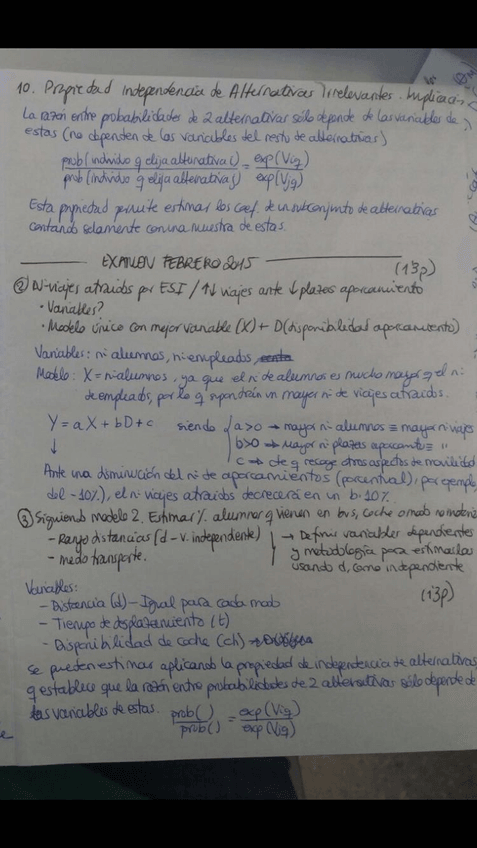 10. Propiedad independencia de Alternativas Irrelevantes. Implicación
La razón entre probabilidades de 2 alternativas sólo depende de las variables de
estas (no dependen de las variables del resto de alternativas)
prob(individuo q elija alternativa i) = exp(Viq)
prob(individuo q elija alternativa j) exp(Vjq)
Esta propiedad permite estimar los coef. de un subconjunto de alternativas
contando solamente con una muestra de estas.
EXAMEN FEBRERO 2015
(13p)
② Nº viajes atraidos por ESI / ↑↓ viajes ante ↓ plazas aparcamiento
• Variables?
• Modelo único con mejor variable (X) + D(disponibilidad aparcamiento)
Variables: nº alumnos, nº empleados,
Modelo: X = nº alumnos, ya que el nº de alumnos es mucho mayor q el nº
de empleados, por lo q supondrían un mayor nº de viajes atraidos.
Y = aX + bD + c siendo { a>0 → mayor nº alumnos ≡ mayor nº viajes
b>0 → Mayor nº plazas aparcam ≡ "
c → cte q recoge otros aspectos de movilidad
Ante una disminución del nº de aparcamientos (porcentual), por ejemplo
del -10%), el nº viajes atraidos decrecerá en un b·10%.
③ Siguiendo modelo 2. Estimar % alumnos q vienen en bus, coche o mod no motoriz
- Rango distancias (d - v. independiente)
- medo transporte.
→ Definir variables dependientes
y metodología para estimarlas
usando d, como independiente
(13p)
Variables:
- Distancia (d) - Igual para cada mod
- Tiempo de desplazamiento (t)
- Disponibilidad de coche (ch)
se pueden estimar aplicando la propiedad de independencia de alternativas
q establece que la razón entre probabilidades de 2 alternativas sólo depende de
las variables de estas. prob() = exp(Viq)
prob() exp(Vjq)